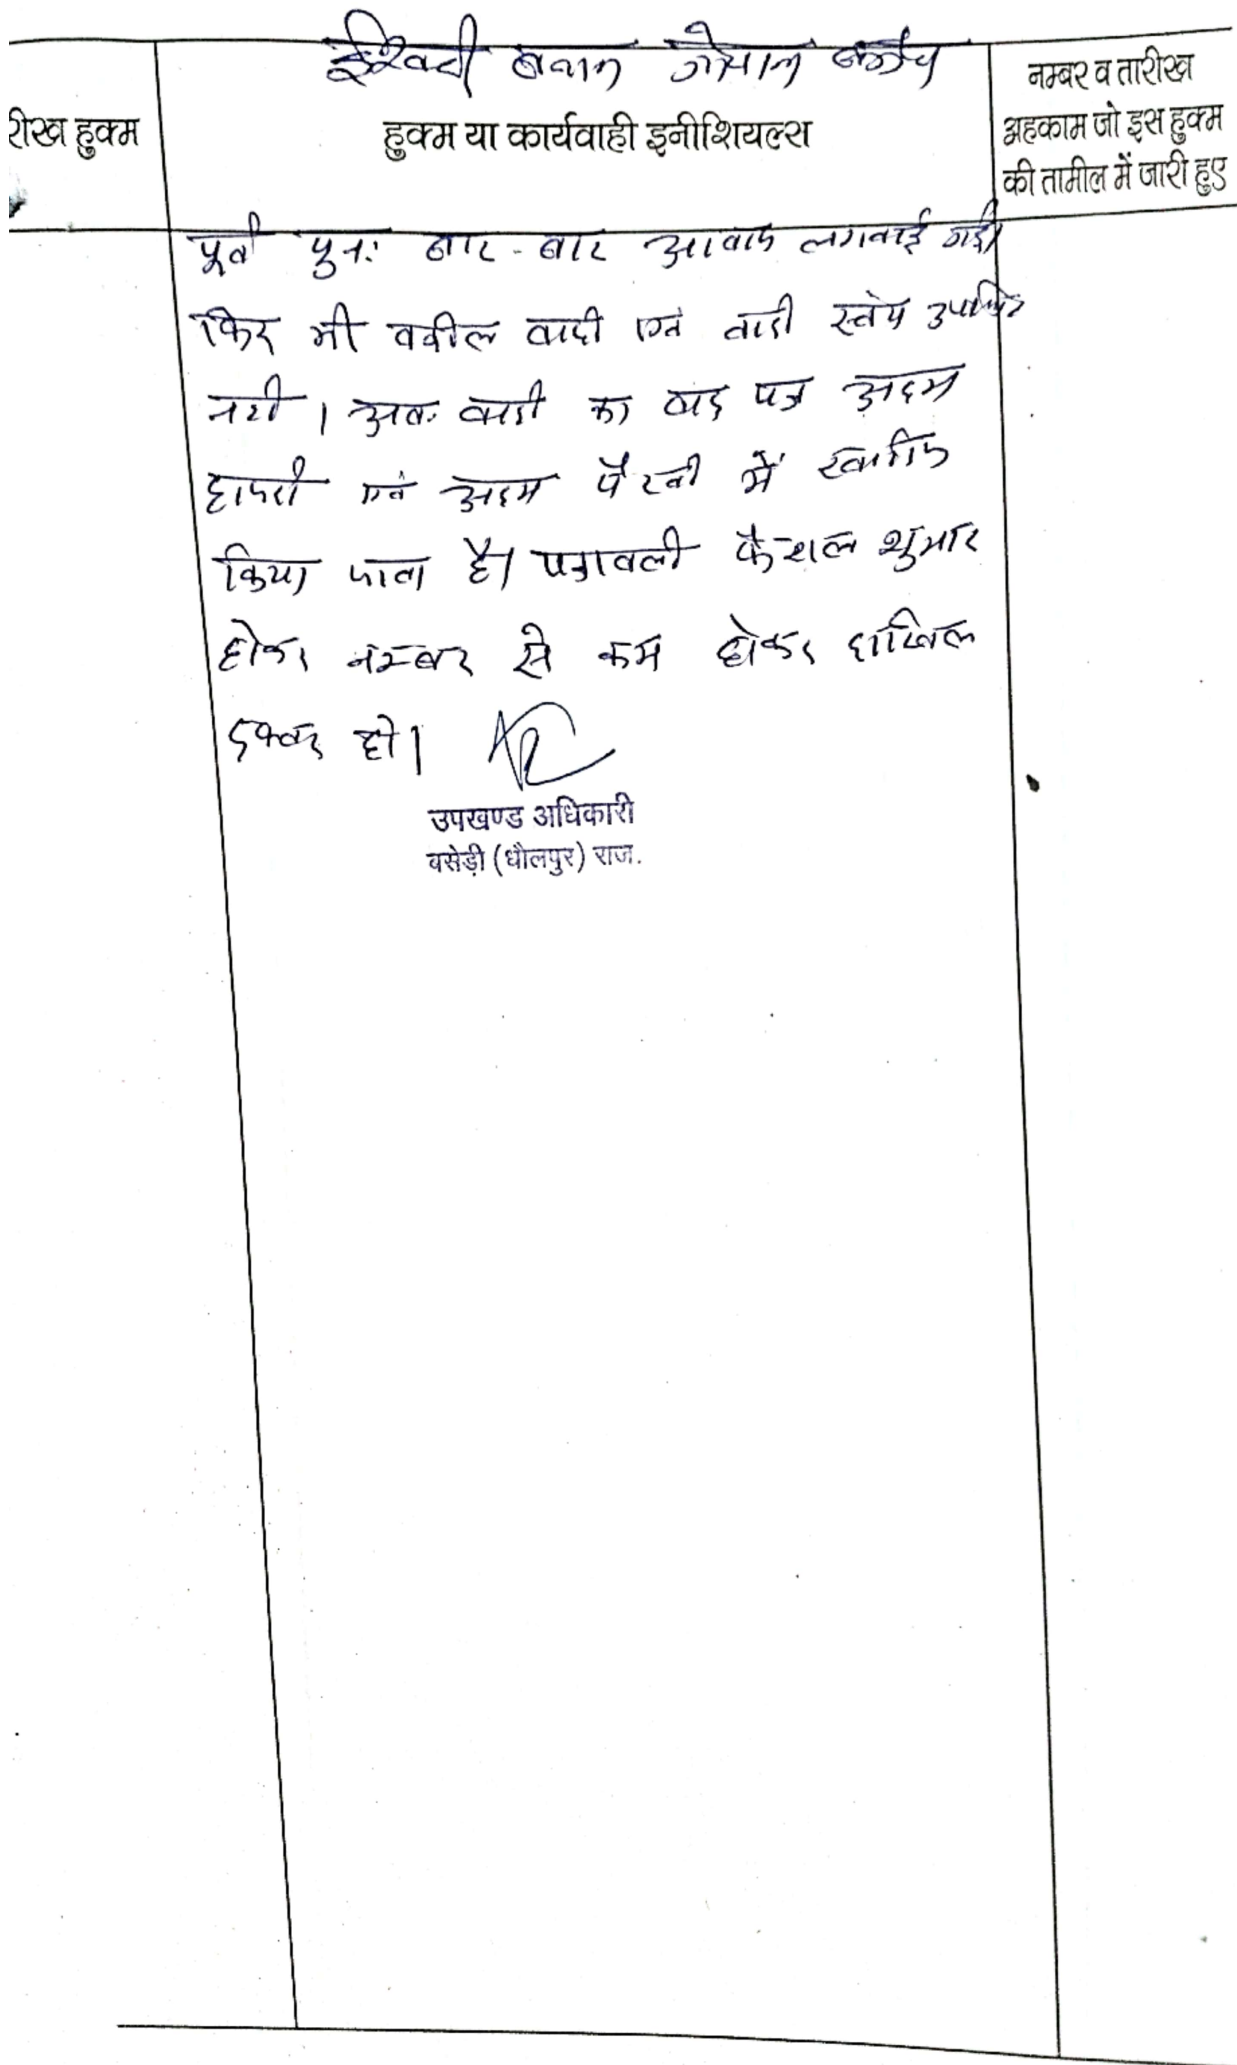 ईश्वरी बनाम गोपाल
रीख हुक्म
हुक्म या कार्यवाही इनीशियल्स
नम्बर व तारीख
अहकाम जो इस हुक्म
की तामील में जारी हुए
पूर्व पुनः बार-बार आवाज लगवाई गई
फिर भी वकील वादी एवं वादी स्वंय उपस्थित
नही। अतः वादी का वाद पत्र अदम
हाजरी एवं अदम पैरवी में खारिज
किया जाता है। पत्रावली फैशल शुमार
होकर नम्बर से कम होकर दाखिल
दफ्तर हो।
उपखण्ड अधिकारी
बसेड़ी (धौलपुर) राज.